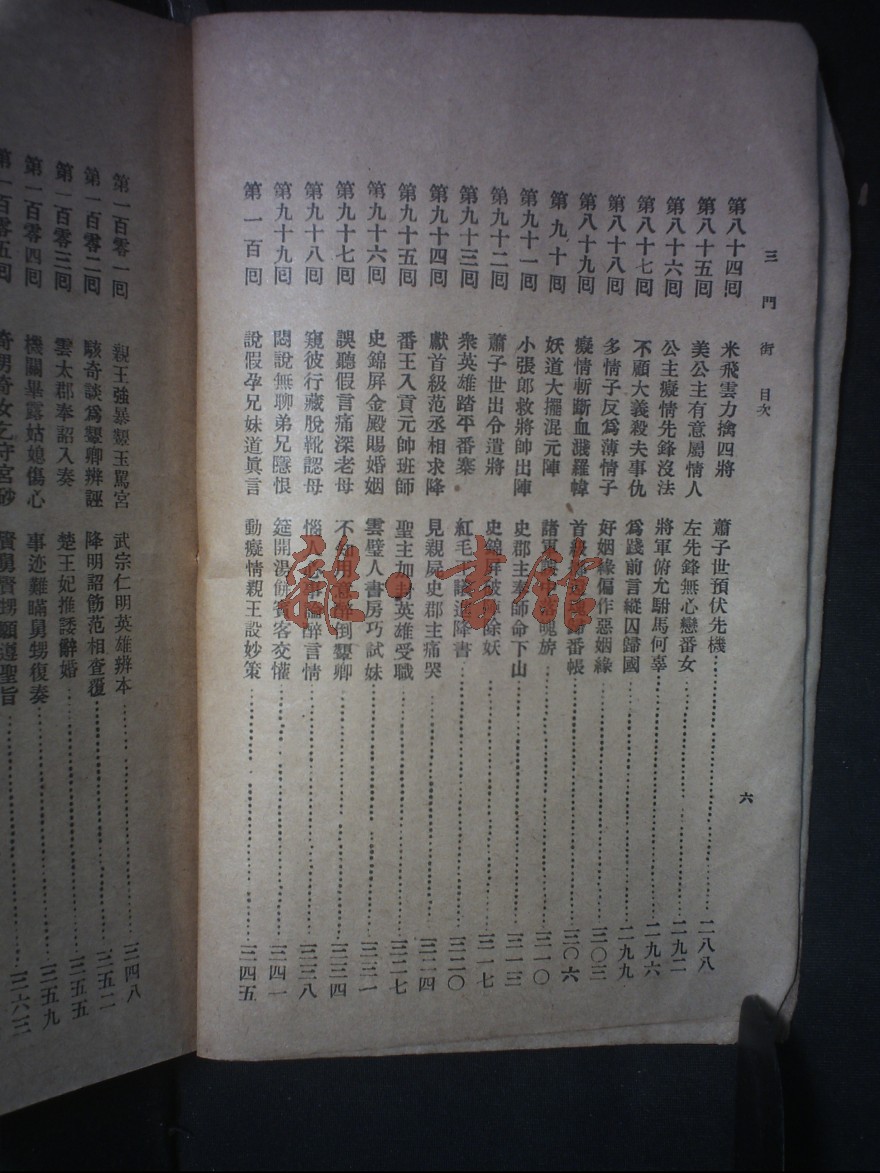 三門街 目次
六
第八十四回 米飛雲力擒四將 蕭子世預伏先機 二八八
第八十五回 美公主有意屬情人 左先鋒無心戀番女 二九二
第八十六回 公主癡情先鋒沒法 將軍俯允駙馬何辜 二九六
第八十七回 不顧大義殺夫事仇 爲踐前言縱囚歸國 二九九
第八十八回 多情子反爲薄情子 好姻緣偏作惡姻緣 三〇三
第八十九回 癡情斬斷血濺羅幃 首級 番帳 三〇六
第九十回 妖道大擺混元陣 諸軍 魂旂 三一〇
第九十一回 小張郎救將帥出陣 史郡主奉師命下山 三一三
第九十二回 蕭子世出令遣將 史錦屏破陣除妖 三一七
第九十三回 衆英雄踏平番寨 紅毛 進降書 三二〇
第九十四回 獻首級范丞相求降 見親屍史郡主痛哭 三二四
第九十五回 番王入貢元帥班師 聖主加封英雄受職 三二七
第九十六回 史錦屏金殿賜婚姻 雲璧人書房巧試妹 三三一
第九十七回 誤聽假言痛深老母 不知用意醉倒顰卿 三三四
第九十八回 窺彼行藏脫靴認母 惱人心事 醉言情 三三八
第九十九回 悶說無聊弟兄隱恨 筵開湯餅賓客交懽 三四一
第一百回 說假孕兄妹道眞言 動癡情親王設妙策 三四五
第一百零一回 親王強暴顰玉罵宮 武宗仁明英雄辨本 三四八
第一百零二回 駭奇談爲顰卿辨誣 降明詔飭范相查覆 三五二
第一百零三回 雲太郡奉詔入奏 楚王妃推諉辭婚 三五五
第一百零四回 機關畢露姑媳傷心 事迹難瞞舅甥復奏 三五九
第一百零五回 奇男奇女乞守宮砂 賢舅賢甥願遵聖旨 三六三
雜·書館